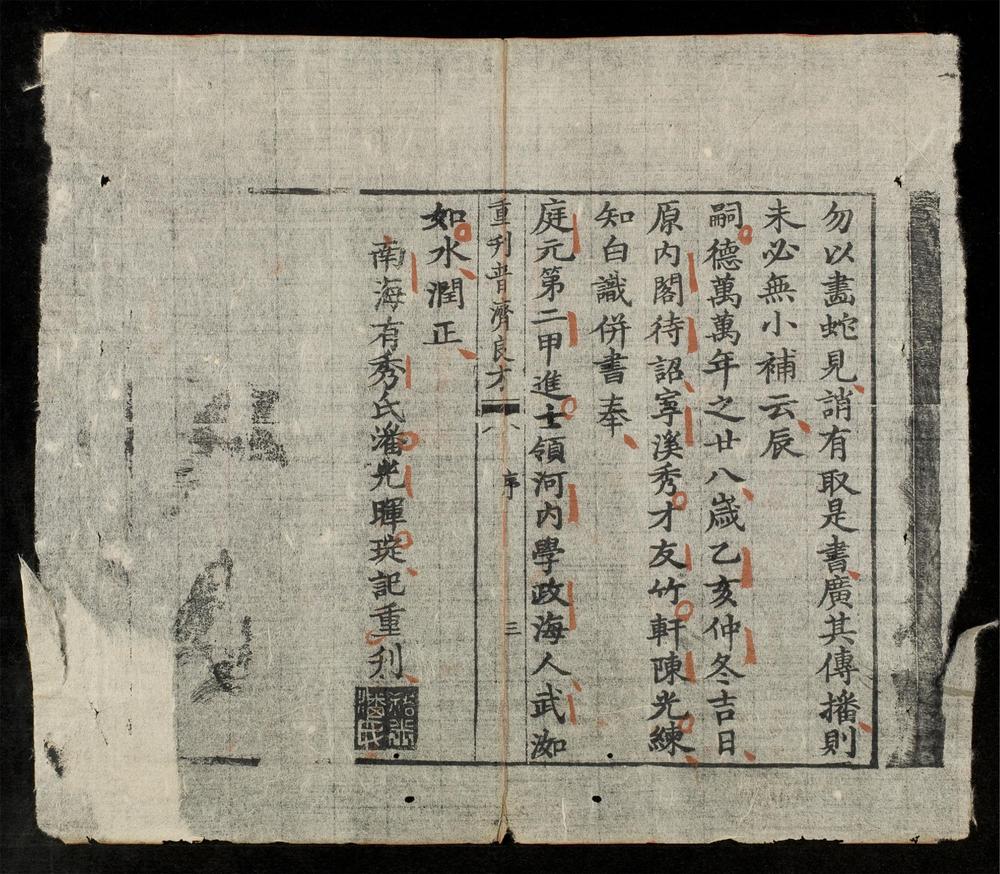 勿以畵蛇見誚有取是書廣其傳播則
未必無小補云辰
嗣德萬萬年之廿八歲乙亥仲冬吉日
原內閣待詔寧溪秀才友竹軒陳光練
知白識併書奉
庭元第二甲進士領河內學政海人武洳
重刊普濟良方 序 三
如水潤正
南海有秀氏潘光暉琔記重刋
潘氏